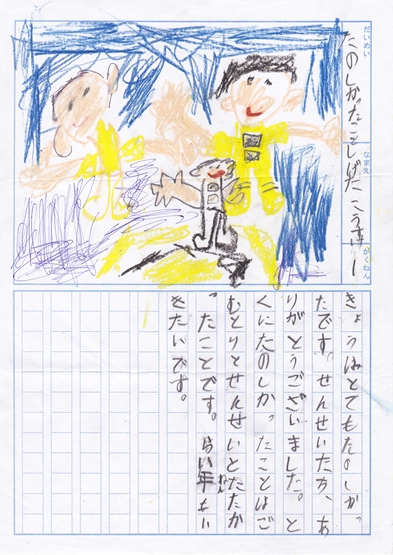 だいめい
たのしかったこと
なまえ
しばた
がくねん
1
きょうはとてもたのしかっ
たです。せんせいたち、あ
りがとうございました。と
くにたのしかったことはご
むとりとせんせいとたたか
ったことです。らい年もい
ねん
きたいです。